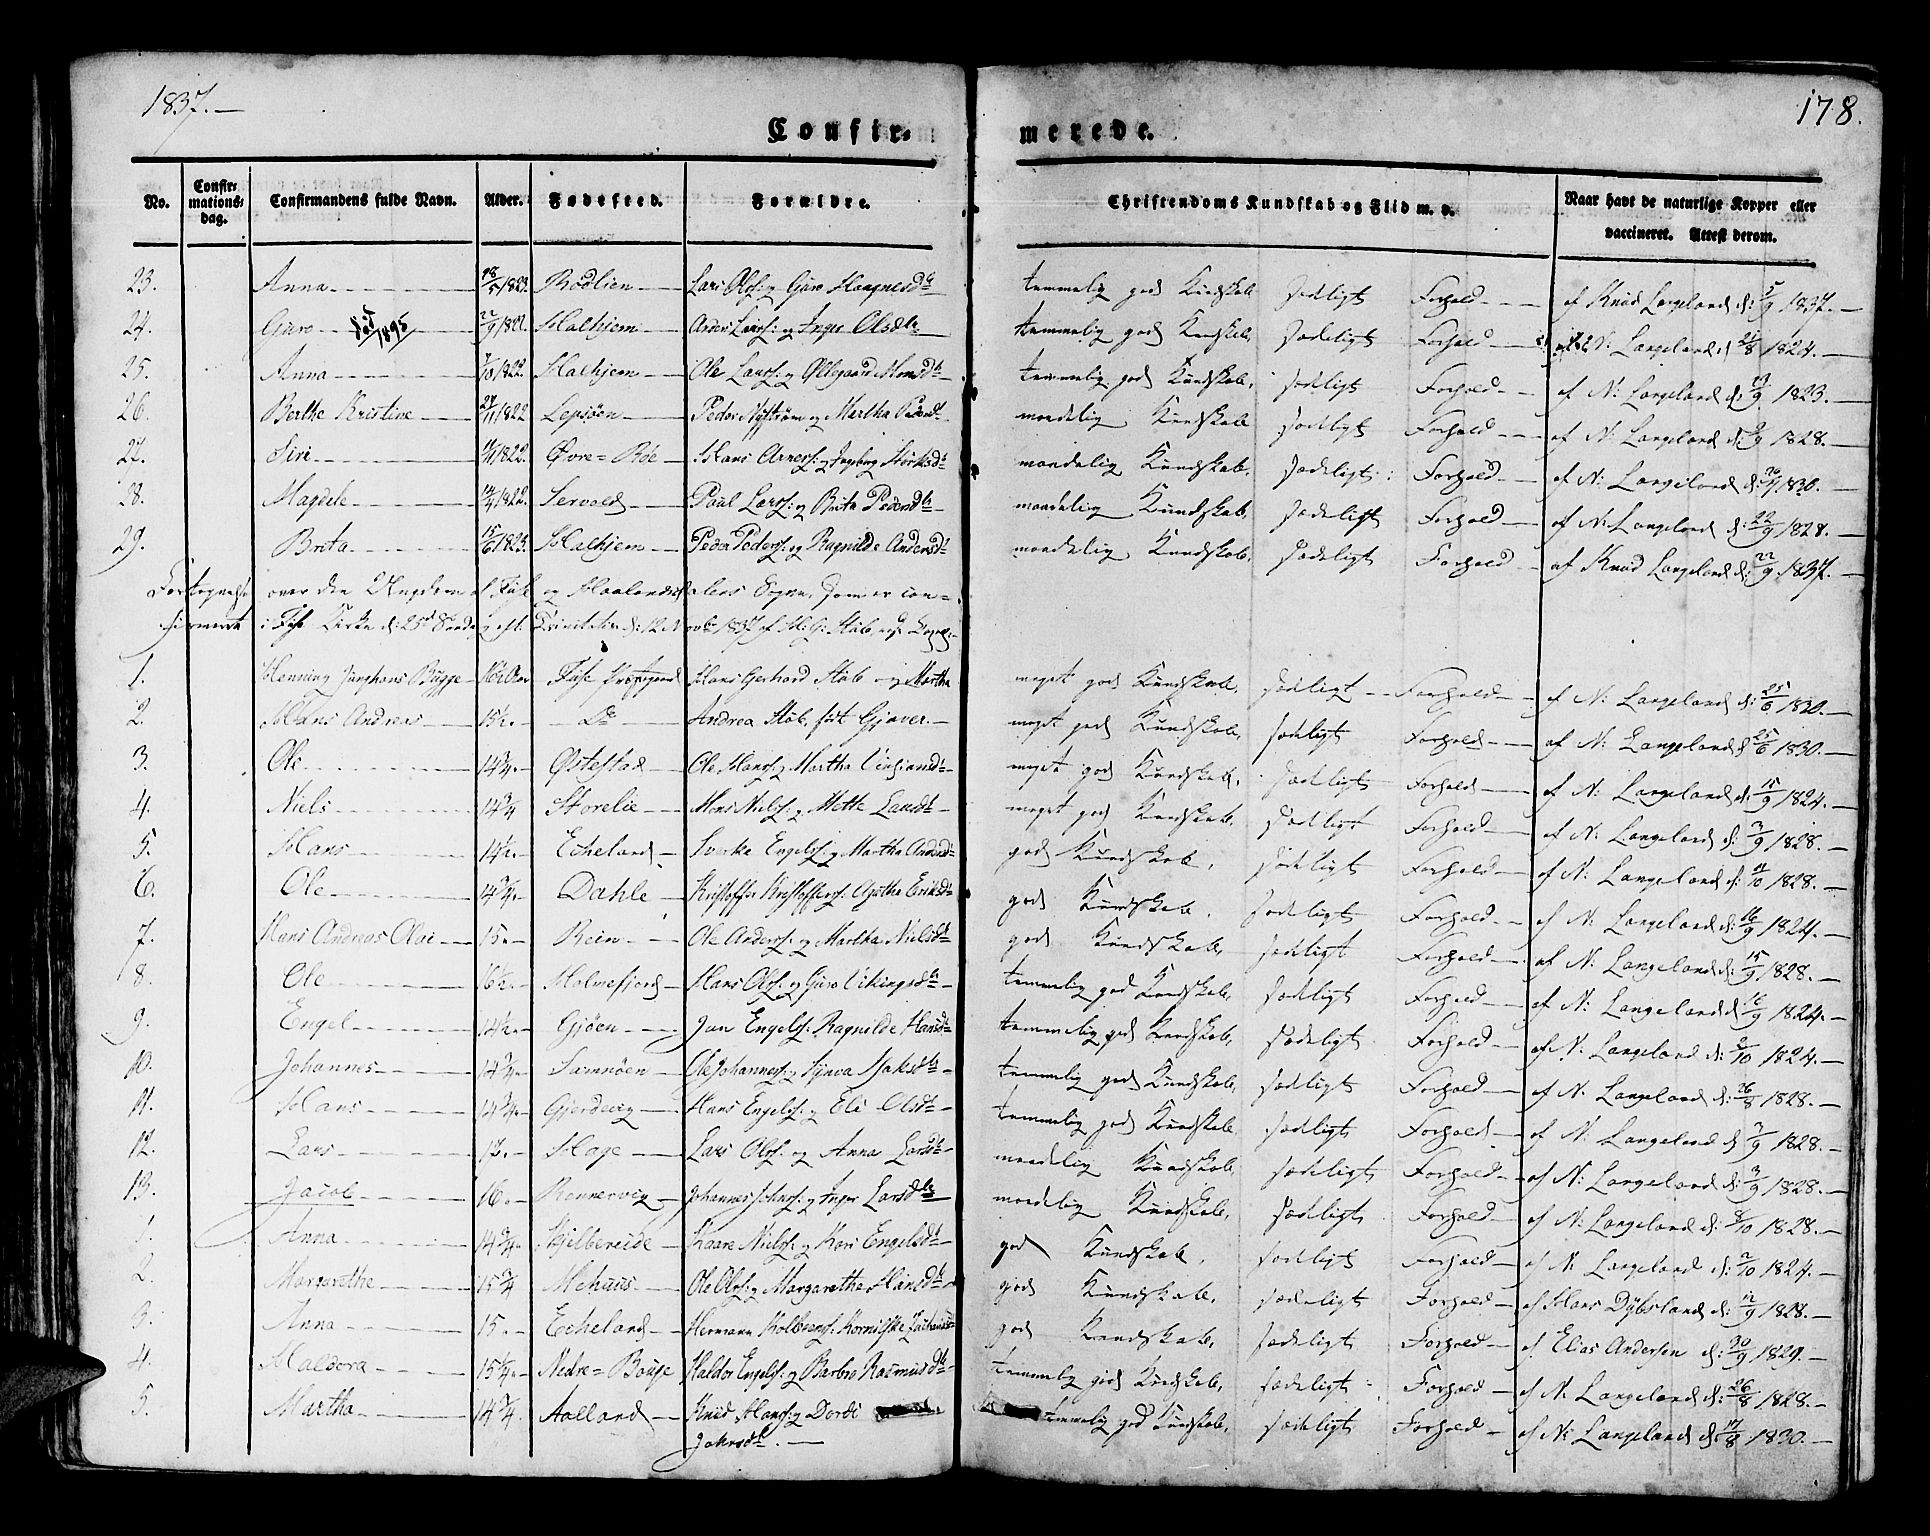 1837.—
178.
Confir= merede.
No. Confir= mations= dag. Confirmandens fulde Navn. Alder. Fødested. Forældre. Christendoms Kundskab og Flid m. v. Naar havt de naturlige Kopper eller vaccineret. Attest derom.
23. Anna 28/5 1823. Rødlien Lars Olss: og Guro Haagnesdtr temmelig god Kundskab sædeligt Forhold af Knud Langeland d: 5/9 1837.
24. Guro 22/9 1822. Halhjem Anders Larss: og Inger Olsdtr temmelig god Kundskab, sædeligt Forhold N: Langeland d 21/8 1824.
25. Anna 7/10 1822. Halhjem Ole Larss: og Øllegaard Monsdtr temmelig god Kundskab, sædeligt Forhold af N: Langeland d: /9 1823.
26. Berthe Kristine 24/11 1822 Lepsøen Peder Nyström og Martha maadelig Kundskab sædeligt Forhold af N: Langeland d: /9 1828.
27. Siri /11 1822. Øvre=Røe Hans Arness: og Ingbrg maadelig Kundskab, sædeligt Forhold af N: Langeland d: 1830.
28. Magdele 1822. Paul Larss: og Brita Pedersdtr maadelig Kundskab, sædeligt Forhold af N: Langeland d: 22/9 1828.
29. Brita 15/6 1823. Halhjem Peder Peders: og Ragnilde Andersdtr maadelig Kundskab, sædeligt Forhold af Knud Langeland d: 22/9 1837.
Fortegnelse over den Ungdom af Fuse og Haalandsdalens Sogne, som er con=
firmeret i Fuse Kirke d: 25de Søndag eft: Trinitatis d: 12 Novbr 1837 af H: G: Støb,
1. Henning Junghans Bugge 16½ Aar Fuse Præstegaard Hans Gerhard Støb og Martha meget god Kundskab, sædeligt Forhold af N: Langeland d: 25/6 1830.
2. Hans Andreas 15½. Do Andrea Støb, født Gjæver. meget god Kundskab, sædeligt Forhold af N: Langeland d 25/6 1830.
3. Ole 14¾. Østestad Ole Hanss: og Martha meget god Kundskab, sædeligt Forhold af N: Langeland d: 15/9 1824.
4. Niels 14¾ Storelie Mons Nielss: og Mette Larsdtr meget god Kundskab, sædeligt Forhold af N: Langeland d: 3/9 1828.
5. Hans 14½. Echeland Sverke Engelss: og Martha Andersdtr god Kundskab, sædeligt Forhold af N: Langeland d: 11/10 1828.
6. Ole 14¾. Dahle Kristoffer Kristoffers: Agatha Eriksdtr god Kundskab, sædeligt Forhold af N: Langeland d: 16/9 1824.
7. Hans Andreas Olai 15. Rein Ole Anderss: og Martha Nielsdtr god Kundskab, sædeligt Forhold af N: Langeland d: 15/9 1828.
8. Ole 16½. Holmefjord Hans Olss: og Guro Vikingsdtr temmelig god Kundskab, sædeligt Forhold af N: Langeland d 16/9 1824.
9. Engel 14½. Gjøen Jan Engelss: Ragnilde Hansdtr temmelig god Kundskab, sædeligt Forhold af N: Langeland d: 2/10 1824.
10. Johannes 14¾. Samnøen Ole Johanness: og Synva temmelig god Kundskab, sædeligt Forhold af N: Langeland d: 26/8 1828.
11. Hans 14¾. Gjerdevig Hans Engelss: og Eli Olsdtr temmelig god Kundskab, sædeligt Forhold af N: Langeland d 3/9 1828.
12. Lars 17. Hage Lars Olss: og Anna Larsdtr maadelig Kundskab, sædeligt Forhold af N: Langeland d: 3/9 1828.
13. Jacob 16. Rannervig Johannes Johns: og Inger Larsdtr maadelig Kundskab, sædeligt Forhold af N: Langeland d: 8/10 1828.
1. Anna 14¾. Skjelbereide Kaare Nielss: og Kari Engelsdtr god Kundskab, sædeligt Forhold af N: Langeland d: 2/10 1824.
2. Margarethe 15¾ Mehuus Ole Olss: og Margarethe Hansdtr god Kundskab, sædeligt Forhold af Hans Dybsland d: 12/9 1828.
3. Anna 15. Echeland Hermann Kolbens: Kornilske god Kundskab, sædeligt Forhold af Elias Andersen d: 30/9 1829.
4. Haldora 15¼. Nedre=Bouge Haldor Engelss: og Barbro Rasmusdtr temmelig god Kundskab, sædeligt Forhold af N: Langeland d: 26/8 1828.
5. Martha 14¾. Aalland Knud Hanss: og Dordi temmelig god Kundskab, sædeligt Forhold af N: Langeland d: 17/8 1830.
Johnsdtr.